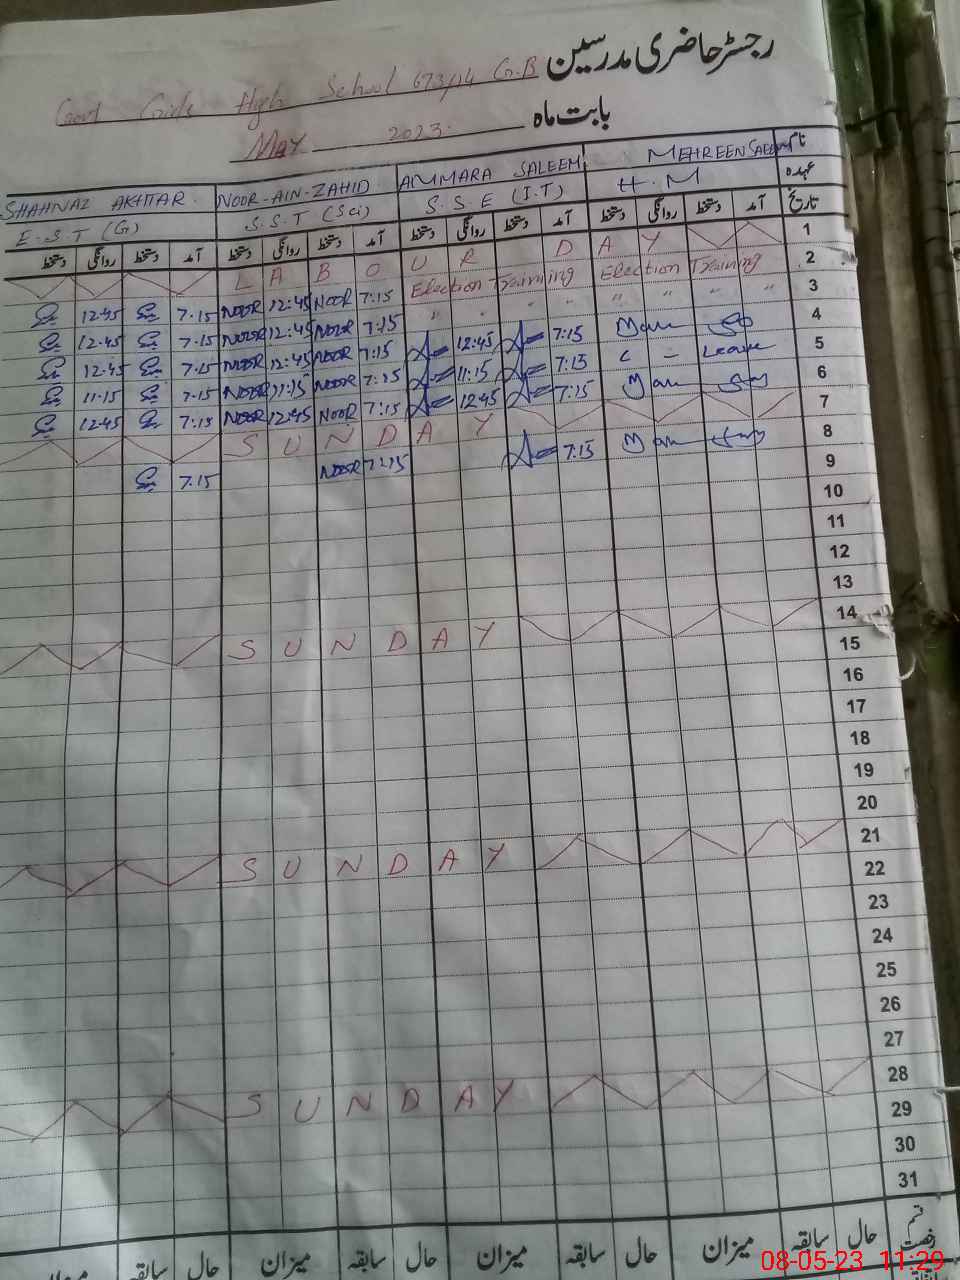 رجسٹر حاضری مدرسین
Govt Girls High School 673/14 G.B
بابت ماہ May 2023.
نام MEHREEN SAEED AMMARA SALEEM NOOR-AIN-ZAHID SHAHNAZ AKHTAR.
عہدہ H.M S.S.E (I.T) S.S.T (Sci) E.S.T (G)
تاریخ آمد دستخط روانگی دستخط آمد دستخط روانگی دستخط آمد دستخط روانگی دستخط آمد دستخط روانگی دستخط
1 LABOUR DAY
2 Election Training Election Training 7:15 NOOR 12:45 NOOR 7.15 12:45
3 " " " " " " " 7:15 NOOR 12:45 NOOR 7.15 12:45
4 7:15 12:45 7:15 NOOR 12:45 NOOR 7.15 12:45
5 C - Leave 7:15 11:15 7:15 NOOR 11:15 NOOR 7.15 11:15
6 7:15 12:45 7:15 NOOR 12:45 NOOR 7:15 12:45
7 SUNDAY
8 7:15 7:15 NOOR 7.15
9
10
11
12
13
14 SUNDAY
15
16
17
18
19
20
21 SUNDAY
22
23
24
25
26
27
28 SUNDAY
29
30
31
قسم رخصت حال سابقہ میزان حال سابقہ میزان حال سابقہ میزان حال سابقہ میزان
08-05-23 11:29